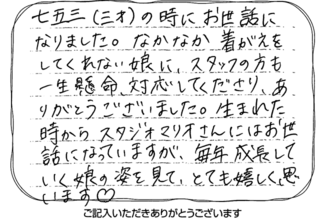 七五三(三才)の時にお世話に
なりました。なかなか着がえを
してくれない娘に、スタッフの方も
一生懸命、対応してくださり、あ
りがとうございました。生まれた
時からスタジオマリオさんにはお世
話になっていますが、毎年成長して
いく娘の姿を見て、とても嬉しく思
います♡
ご記入いただきありがとうございます